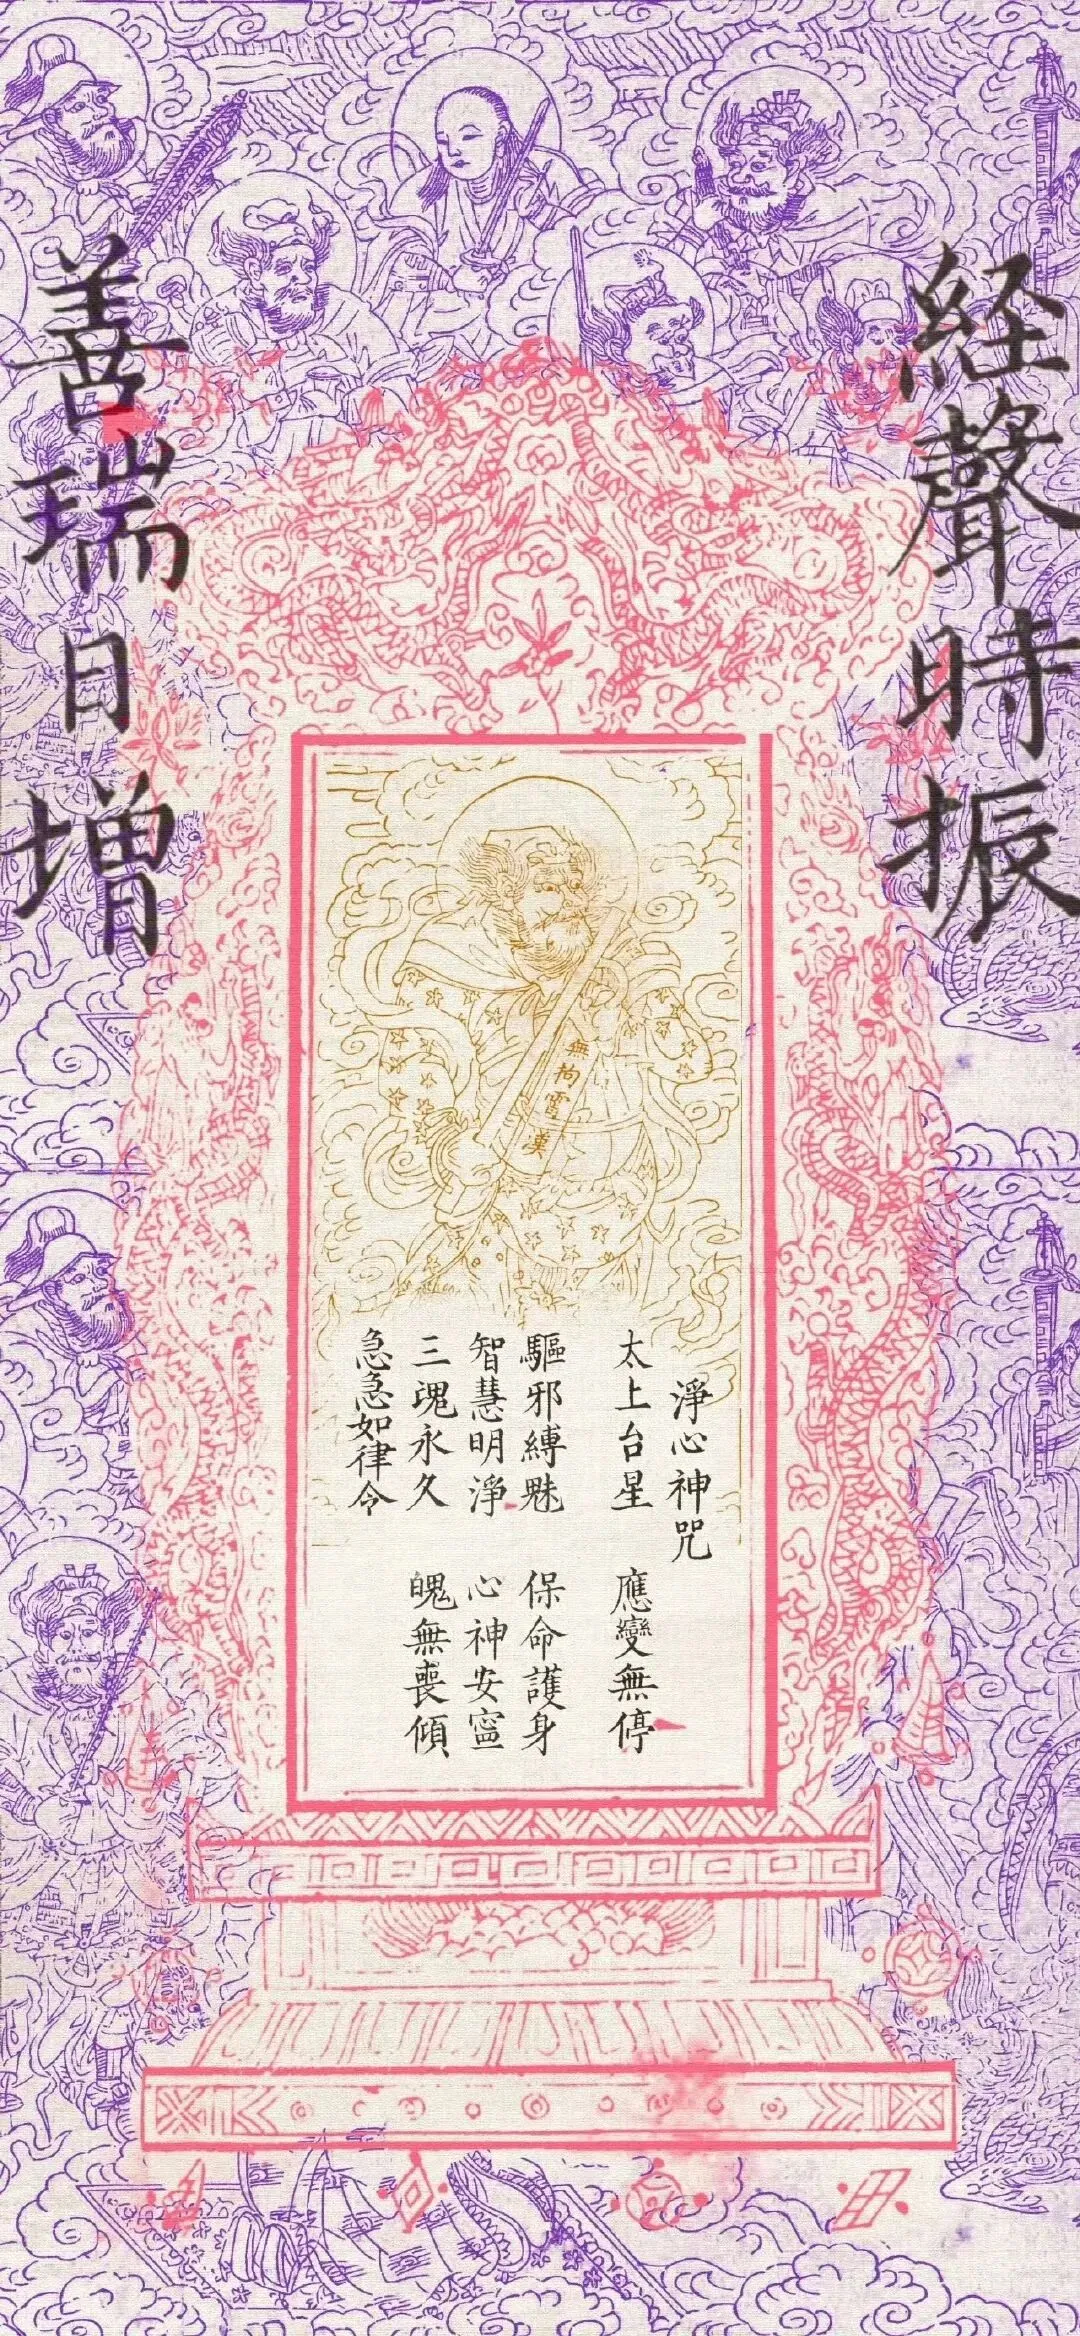 經聲時振
善瑞日增
無拘霄漢
淨心神咒
太上台星 應變無停
驅邪縛魅 保命護身
智慧明淨 心神安寍
三魂永久 魄無喪傾
急急如律令